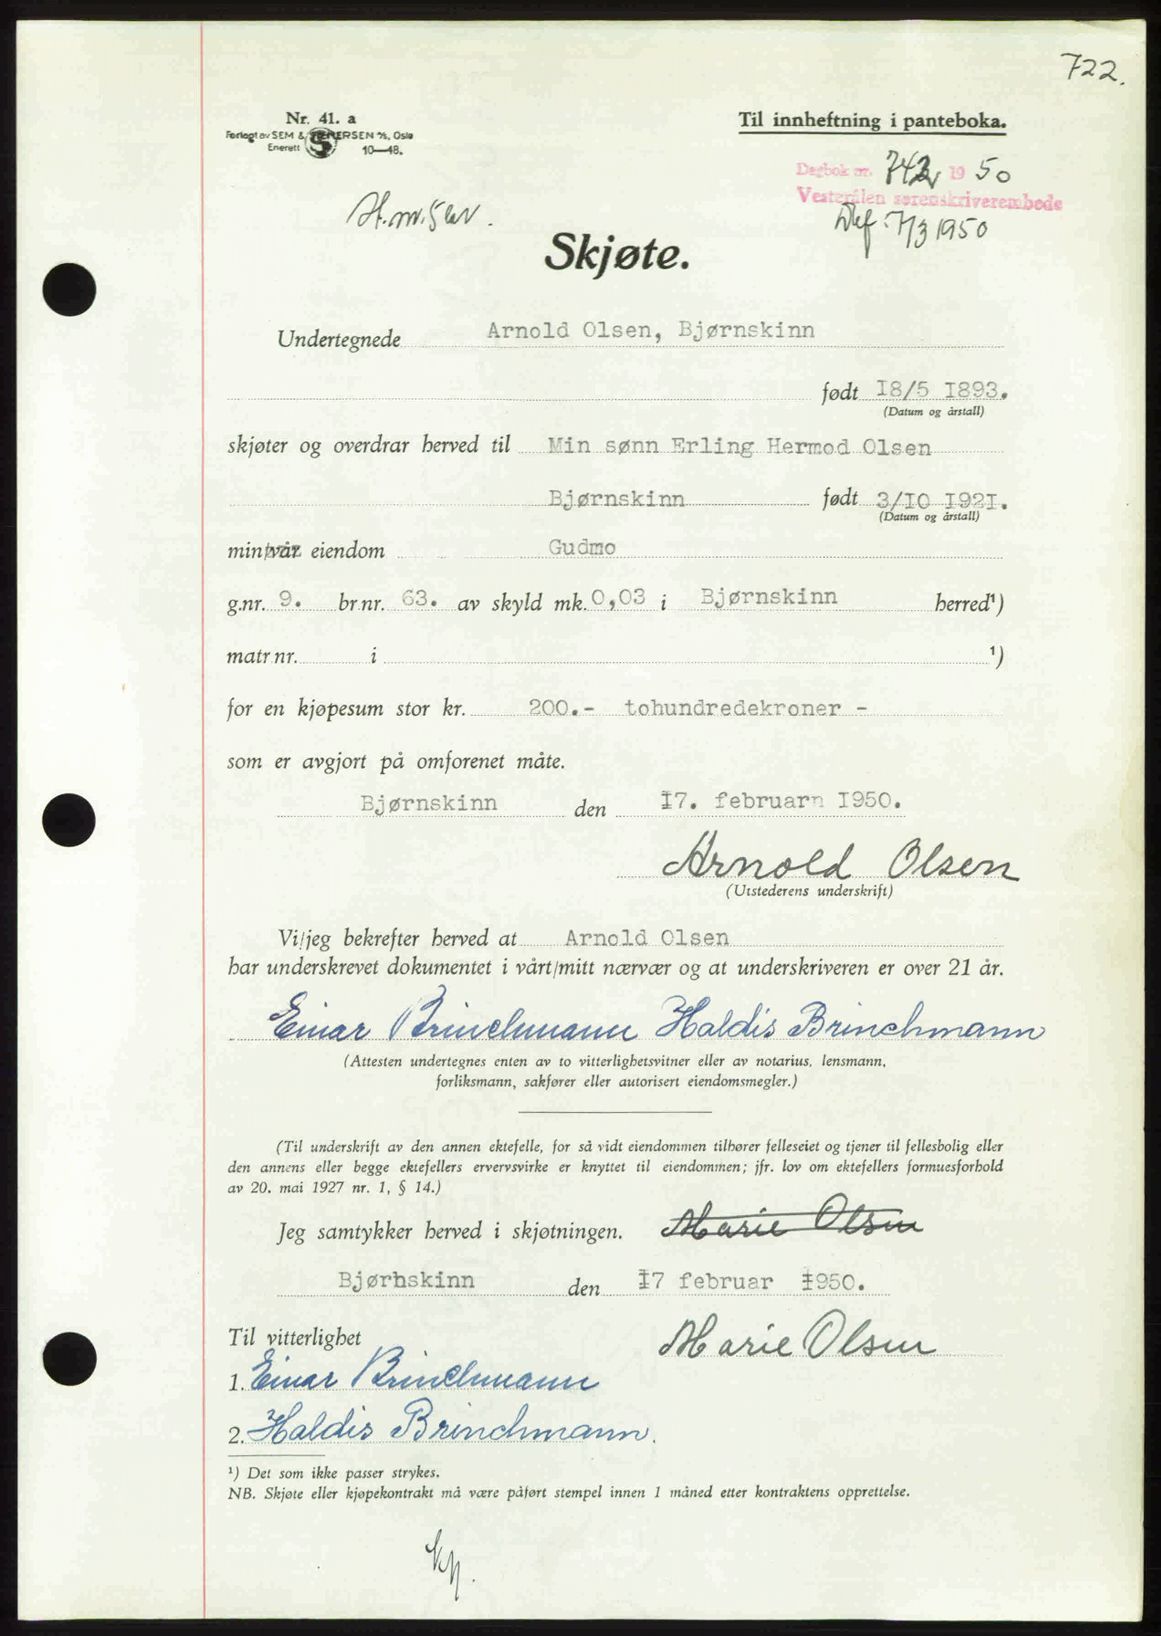 722.
Nr. 41. a
Forlagt av SEM & STENERSEN A/S, Oslo
Enerett 10—48.
Til innheftning i panteboka.
Dagbok nr. 742 1950
Vesterålen sorenskriverembede
7/3 1950
Skjøte.
Undertegnede Arnold Olsen, Bjørnskinn
født I8/5 I893.
(Datum og årstall)
skjøter og overdrar herved til Min sønn Erling Hermod Olsen
Bjørnskinn født 3/IO I92I.
(Datum og årstall)
min/vår eiendom Gudmo
g.nr. 9. br.nr. 63. av skyld mk. 0,03 i Bjørnskinn herred¹)
matr.nr. i ¹)
for en kjøpesum stor kr. 200.- tohundredekroner -
som er avgjort på omforenet måte.
Bjørnskinn den I7. februarn I950.
Arnold Olsen
(Utstederens underskrift)
Vi/jeg bekrefter herved at Arnold Olsen
har underskrevet dokumentet i vårt/mitt nærvær og at underskriveren er over 21 år.
Einar Brinchmann Haldis Brinchmann
(Attesten undertegnes enten av to vitterlighetsvitner eller av notarius, lensmann,
forliksmann, sakfører eller autorisert eiendomsmegler.)
(Til underskrift av den annen ektefelle, for så vidt eiendommen tilhører felleseiet og tjener til fellesbolig eller
den annens eller begge ektefellers ervervsvirke er knyttet til eiendommen; jfr. lov om ektefellers formuesforhold
av 20. mai 1927 nr. 1, § 14.)
Jeg samtykker herved i skjøtningen. Marie Olsen
Bjørhskinn den I7 februar I950.
Til vitterlighet Marie Olsen
1. Einar Brinchmann
2. Haldis Brinchmann.
¹) Det som ikke passer strykes.
NB. Skjøte eller kjøpekontrakt må være påført stempel innen 1 måned etter kontraktens opprettelse.